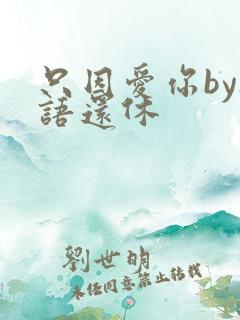 只因愛你by
語還休
劉世明
未经同意禁止转载